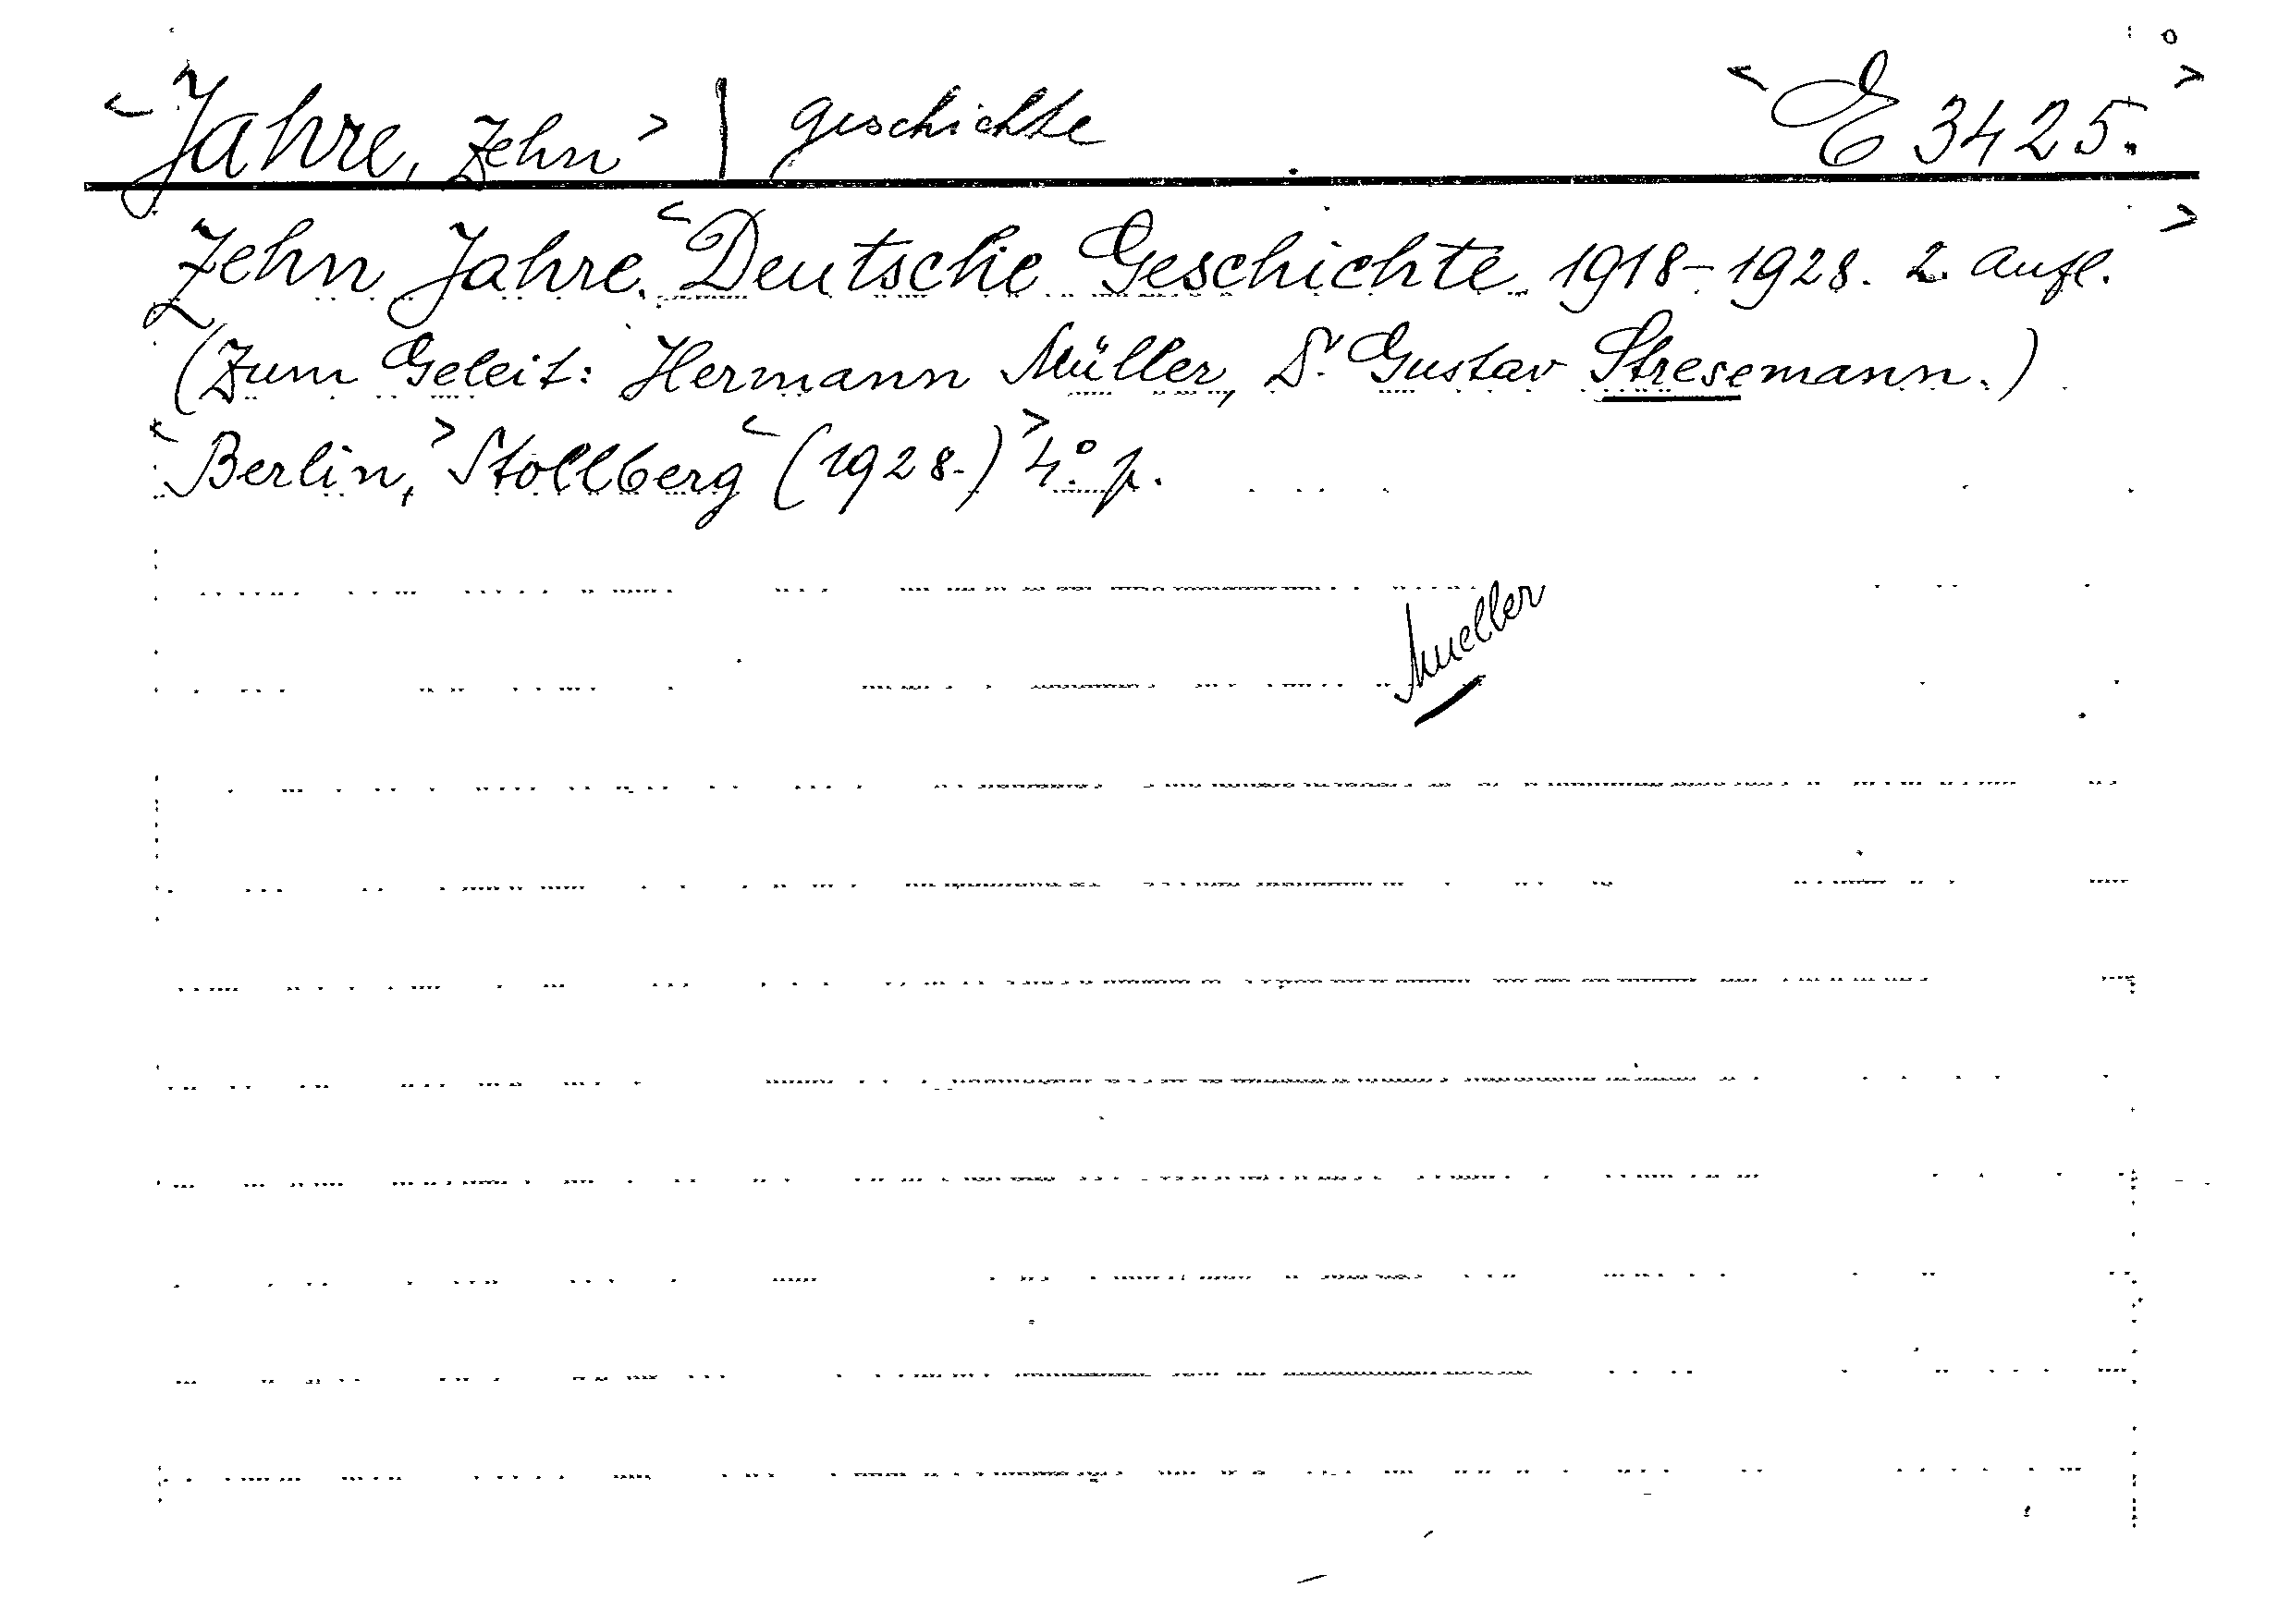 <Jahre, Zehn> | geschichte <E 3425.>
Zehn Jahre. <Deutsche Geschichte 1918-1928. 2. Aufl.>
(Zum Geleit: Hermann Müller, Dr. Gustav Stresemann.)
<Berlin,> Stollberg <(1928.)> 4.° p.
Mueller